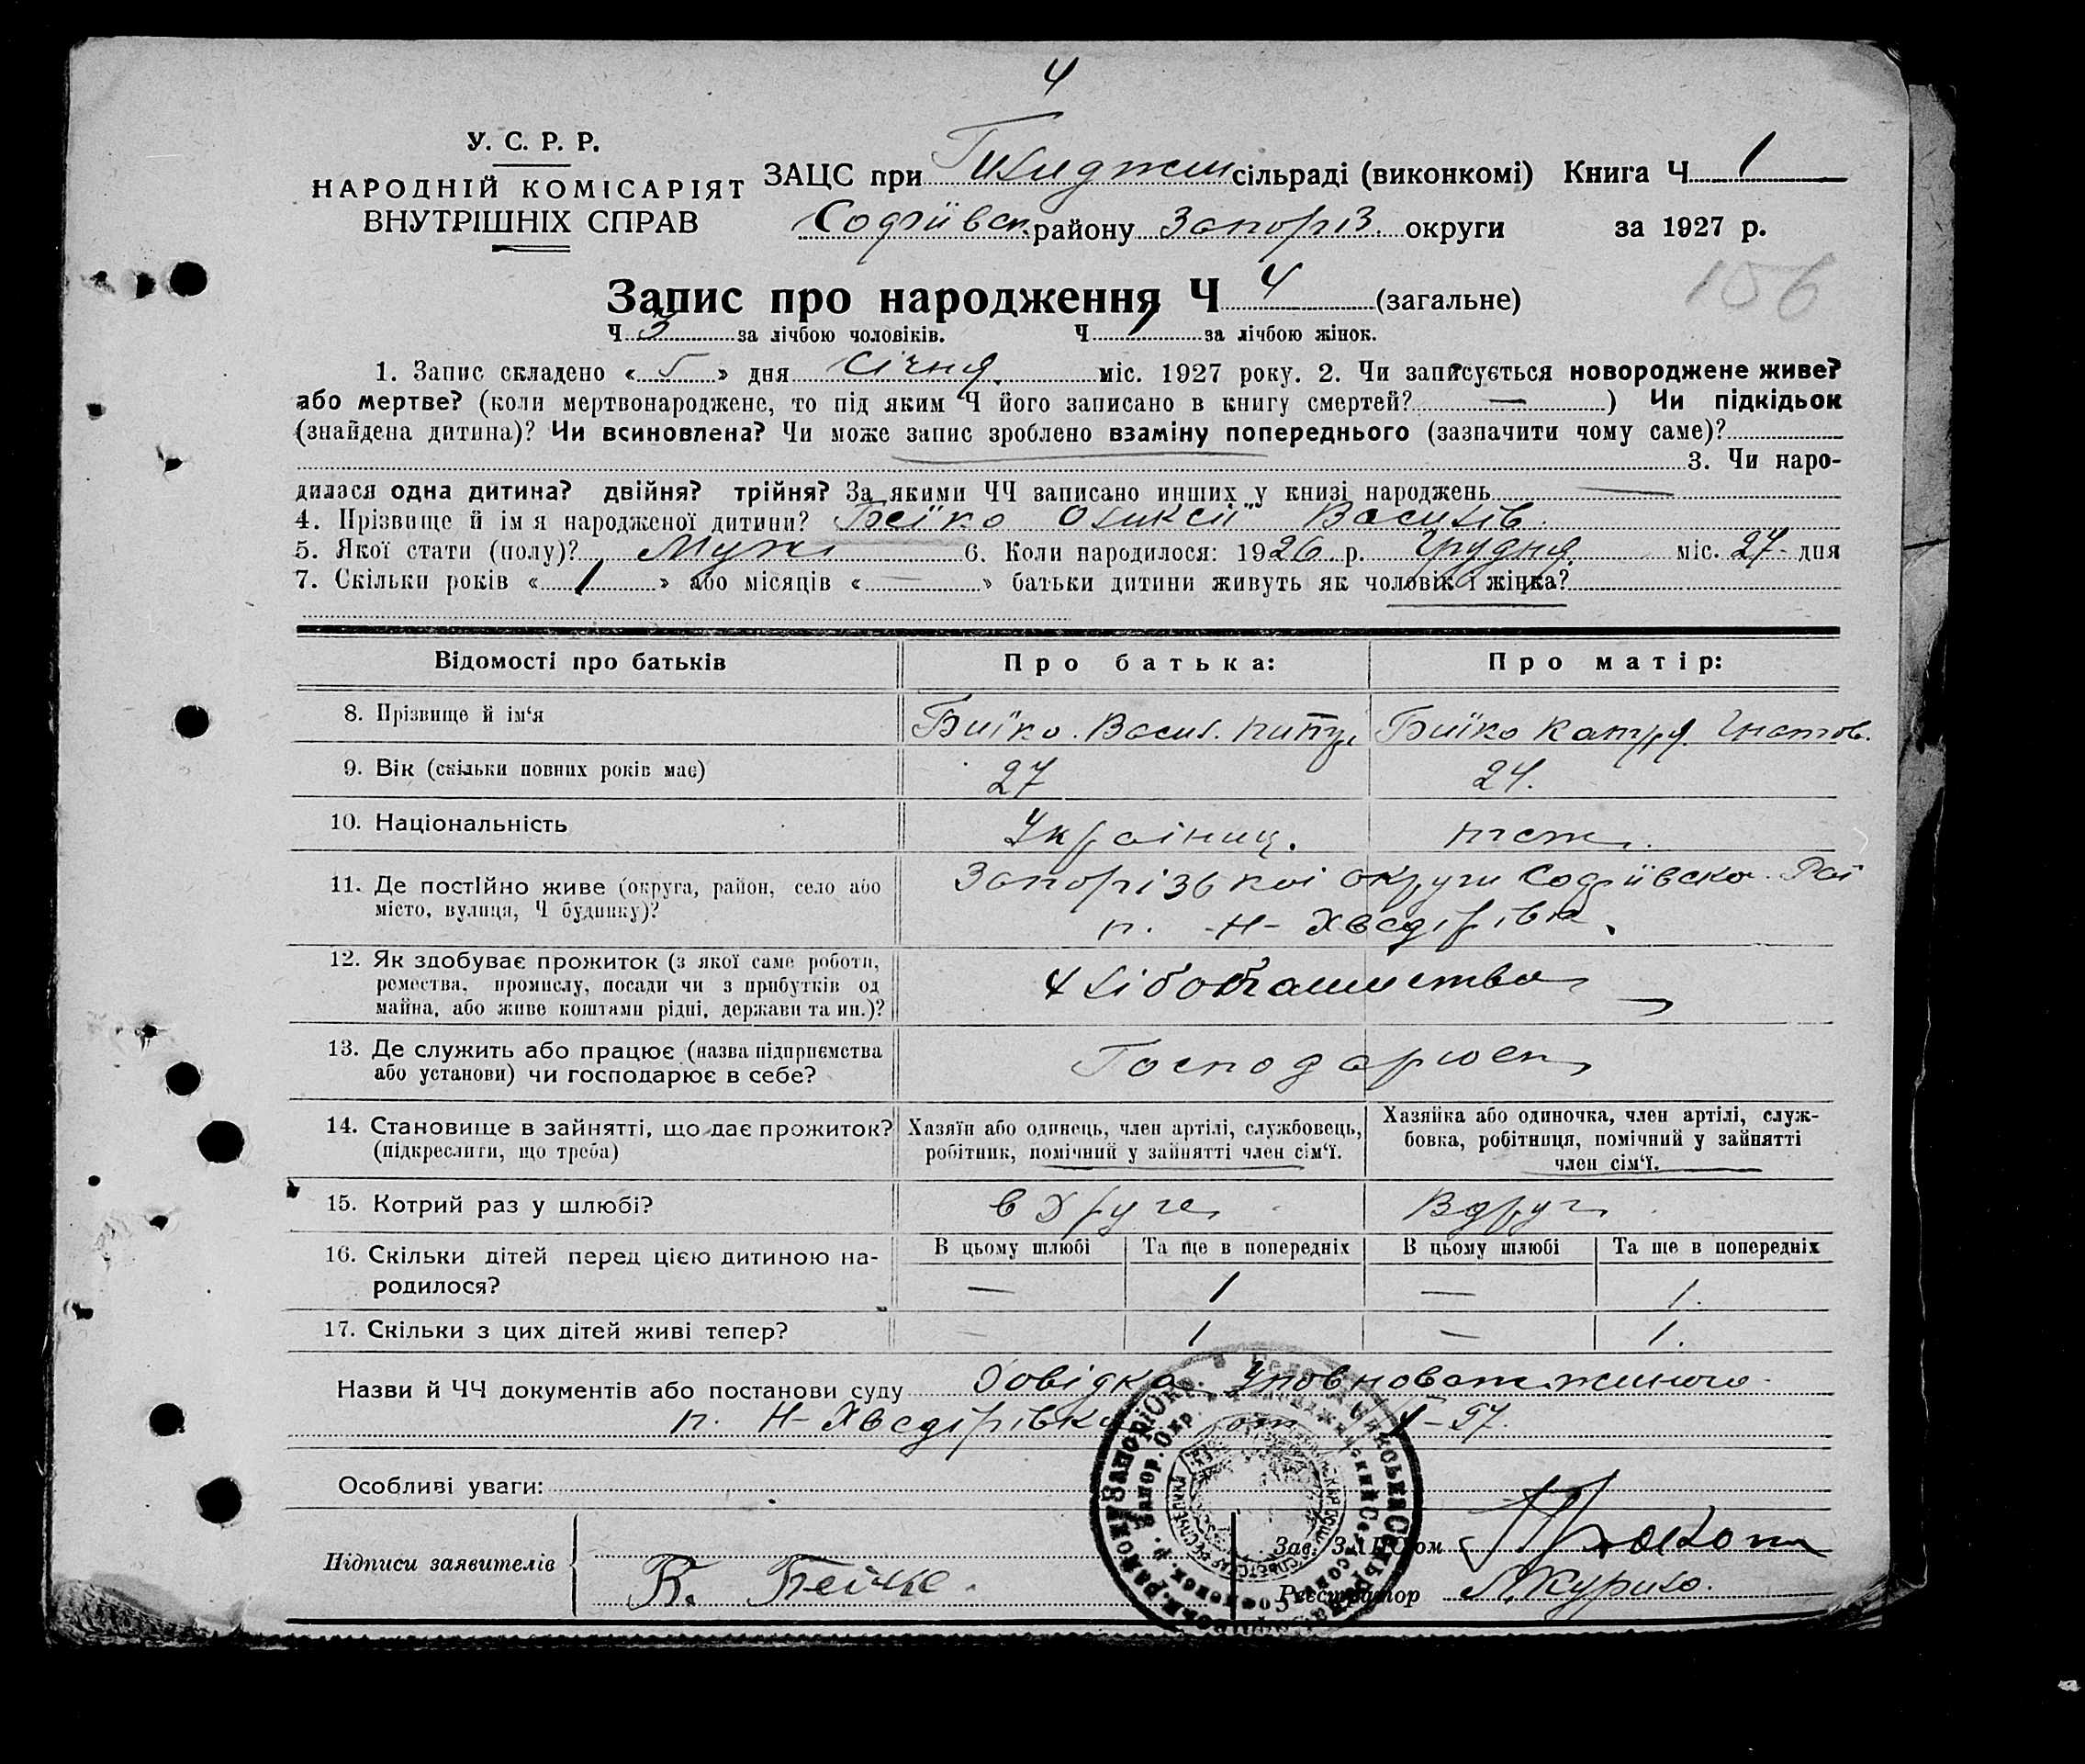 4
У. С. Р. Р.
НАРОДНІЙ КОМІСАРІЯТ
ВНУТРІШНІХ СПРАВ
ЗАЦС при сільраді (виконкомі) Книга Ч 1
Софіївск. району Запоріз. округи за 1927 р.
156
Запис про народження Ч 4 (загальне)
Ч 3 за лічбою чоловіків. Ч 1 за лічбою жінок.
1. Запис складено «5» дня січня міс. 1927 року. 2. Чи записується новороджене живе?
або мертве? (коли мертвонароджене, то під яким Ч його записано в книгу смертей? — ) Чи підкідьок
(знайдена дитина)? Чи всиновлена? Чи може запис зроблено взаміну попереднього (зазначити чому саме)?
3. Чи наро-
дилася одна дитина? двійня? трійня? За якими ЧЧ записано инших у книзі народжень —
4. Прізвище й ім я народженої дитини? Оликсій Василів.
5. Якої стати (полу)? Муж 6. Коли народилося: 1926 р. Грудня міс. 27 дня
7. Скільки років «1» або місяців « — » батьки дитини живуть як чоловік і жінка?
Відомості про батьків Про батька: Про матір:
8. Прізвище й ім‘я Биїко. Васил. Биїко Катря Гнатов.
9. Вік (скільки повних років має) 27 24.
10. Національність Україниц. теж.
11. Де постійно живе (округа, район, село або Запорізької округи Софіївско Рай
місто, вулиця, Ч будинку)? п. Н- Хведірівка.
12. Як здобуває прожиток (з якої саме роботи, Хліборобашиства
ремества, промислу, посади чи з прибутків од
майна, або живе коштами рідні, держави та ин.)?
13. Де служить або працює (назва підприємства Господарюєт
або установи) чи господарює в себе?
14. Становище в зайнятті, що дає прожиток? Хазяїн або одинець, член артілі, службовець, Хазяйка або одиночка, член артілі, служ-
(підкреслити, що треба) робітник, помічний у зайнятті член сім‘ї. бовка, робітниця, помічний у зайнятті
член сім‘ї.
15. Котрий раз у шлюбі? в друге Вдруг
16. Скільки дітей перед цією дитиною на- В цьому шлюбі Та ще в попередніх В цьому шлюбі Та ще в попередніх
родилося? — 1 — 1.
17. Скільки з цих дітей живі тепер? — 1 — 1.
Назви й ЧЧ документів або постанови суду Довідка Уповноваженного
п. Н- Хведірівки от
Особливі уваги:
Підписи заявителів Зав. ЗАЦСом
В. Бейке. Реєстратор